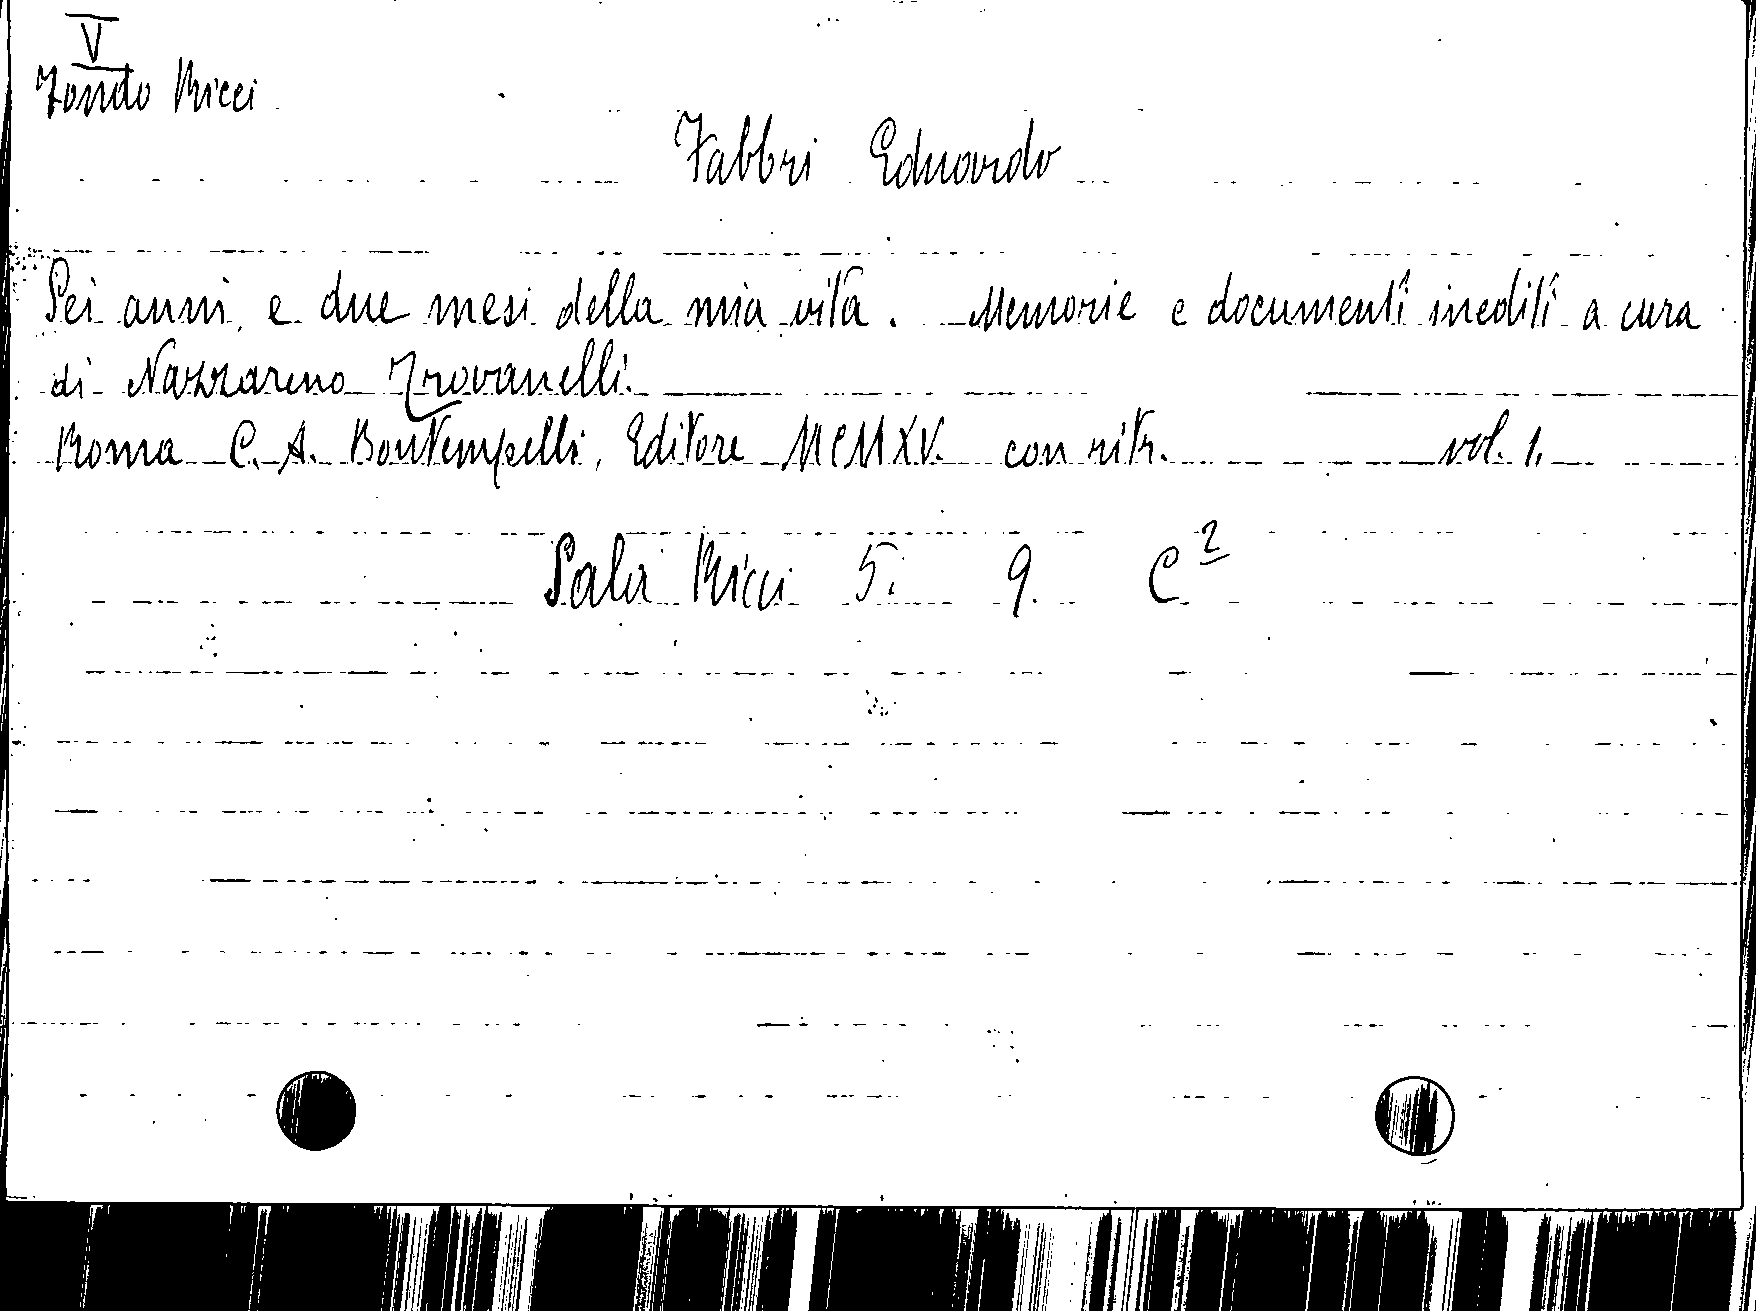 V
Fondo Ricci
Fabbri Eduardo
Sei anni e due mesi della mia vita. Memorie e documenti inediti a cura
di Nazzareno Trovanelli.
Roma C. A. Bontempelli, Editore MCMXV. con ritr. vol. 1.
Sala Ricci 5. 9. C2